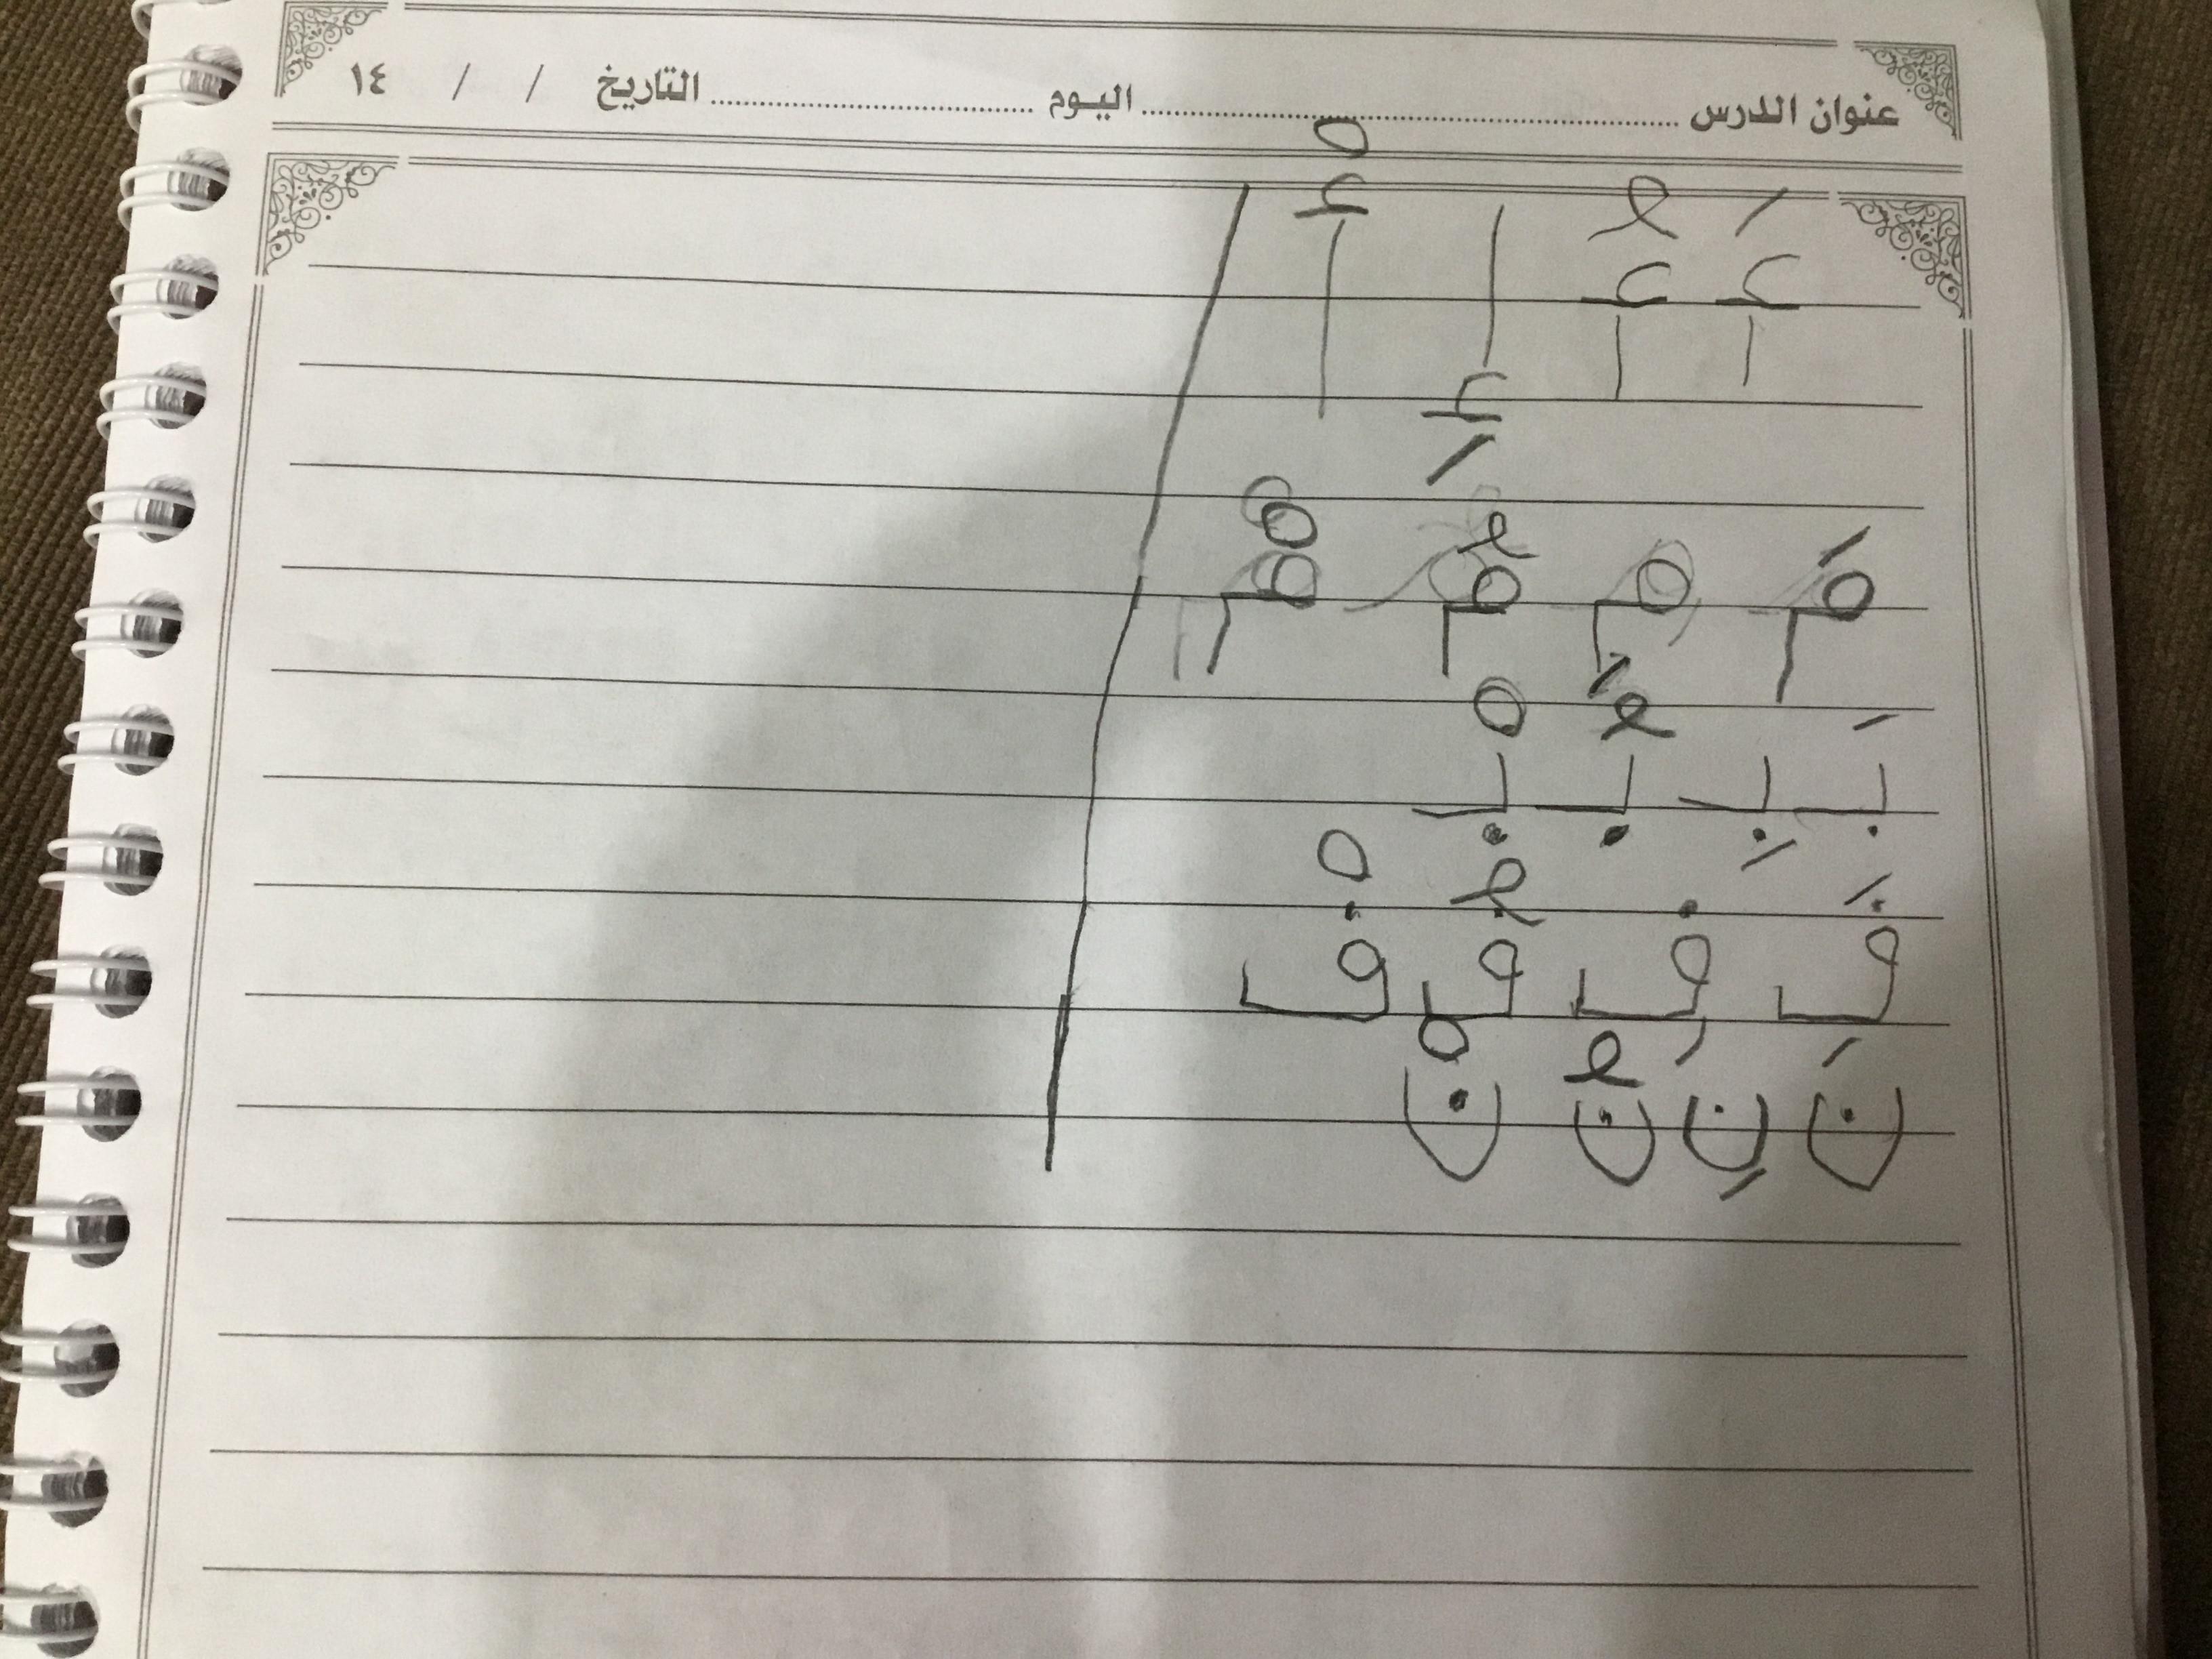 عنوان الدرس ........ اليوم ........ التاريخ / / ١٤
أَ أُ إِ أْ
مَ مِ مُ مْ
بَ بِ بُ بْ
فَ فِ فُ فْ
نَ نِ نُ نْ